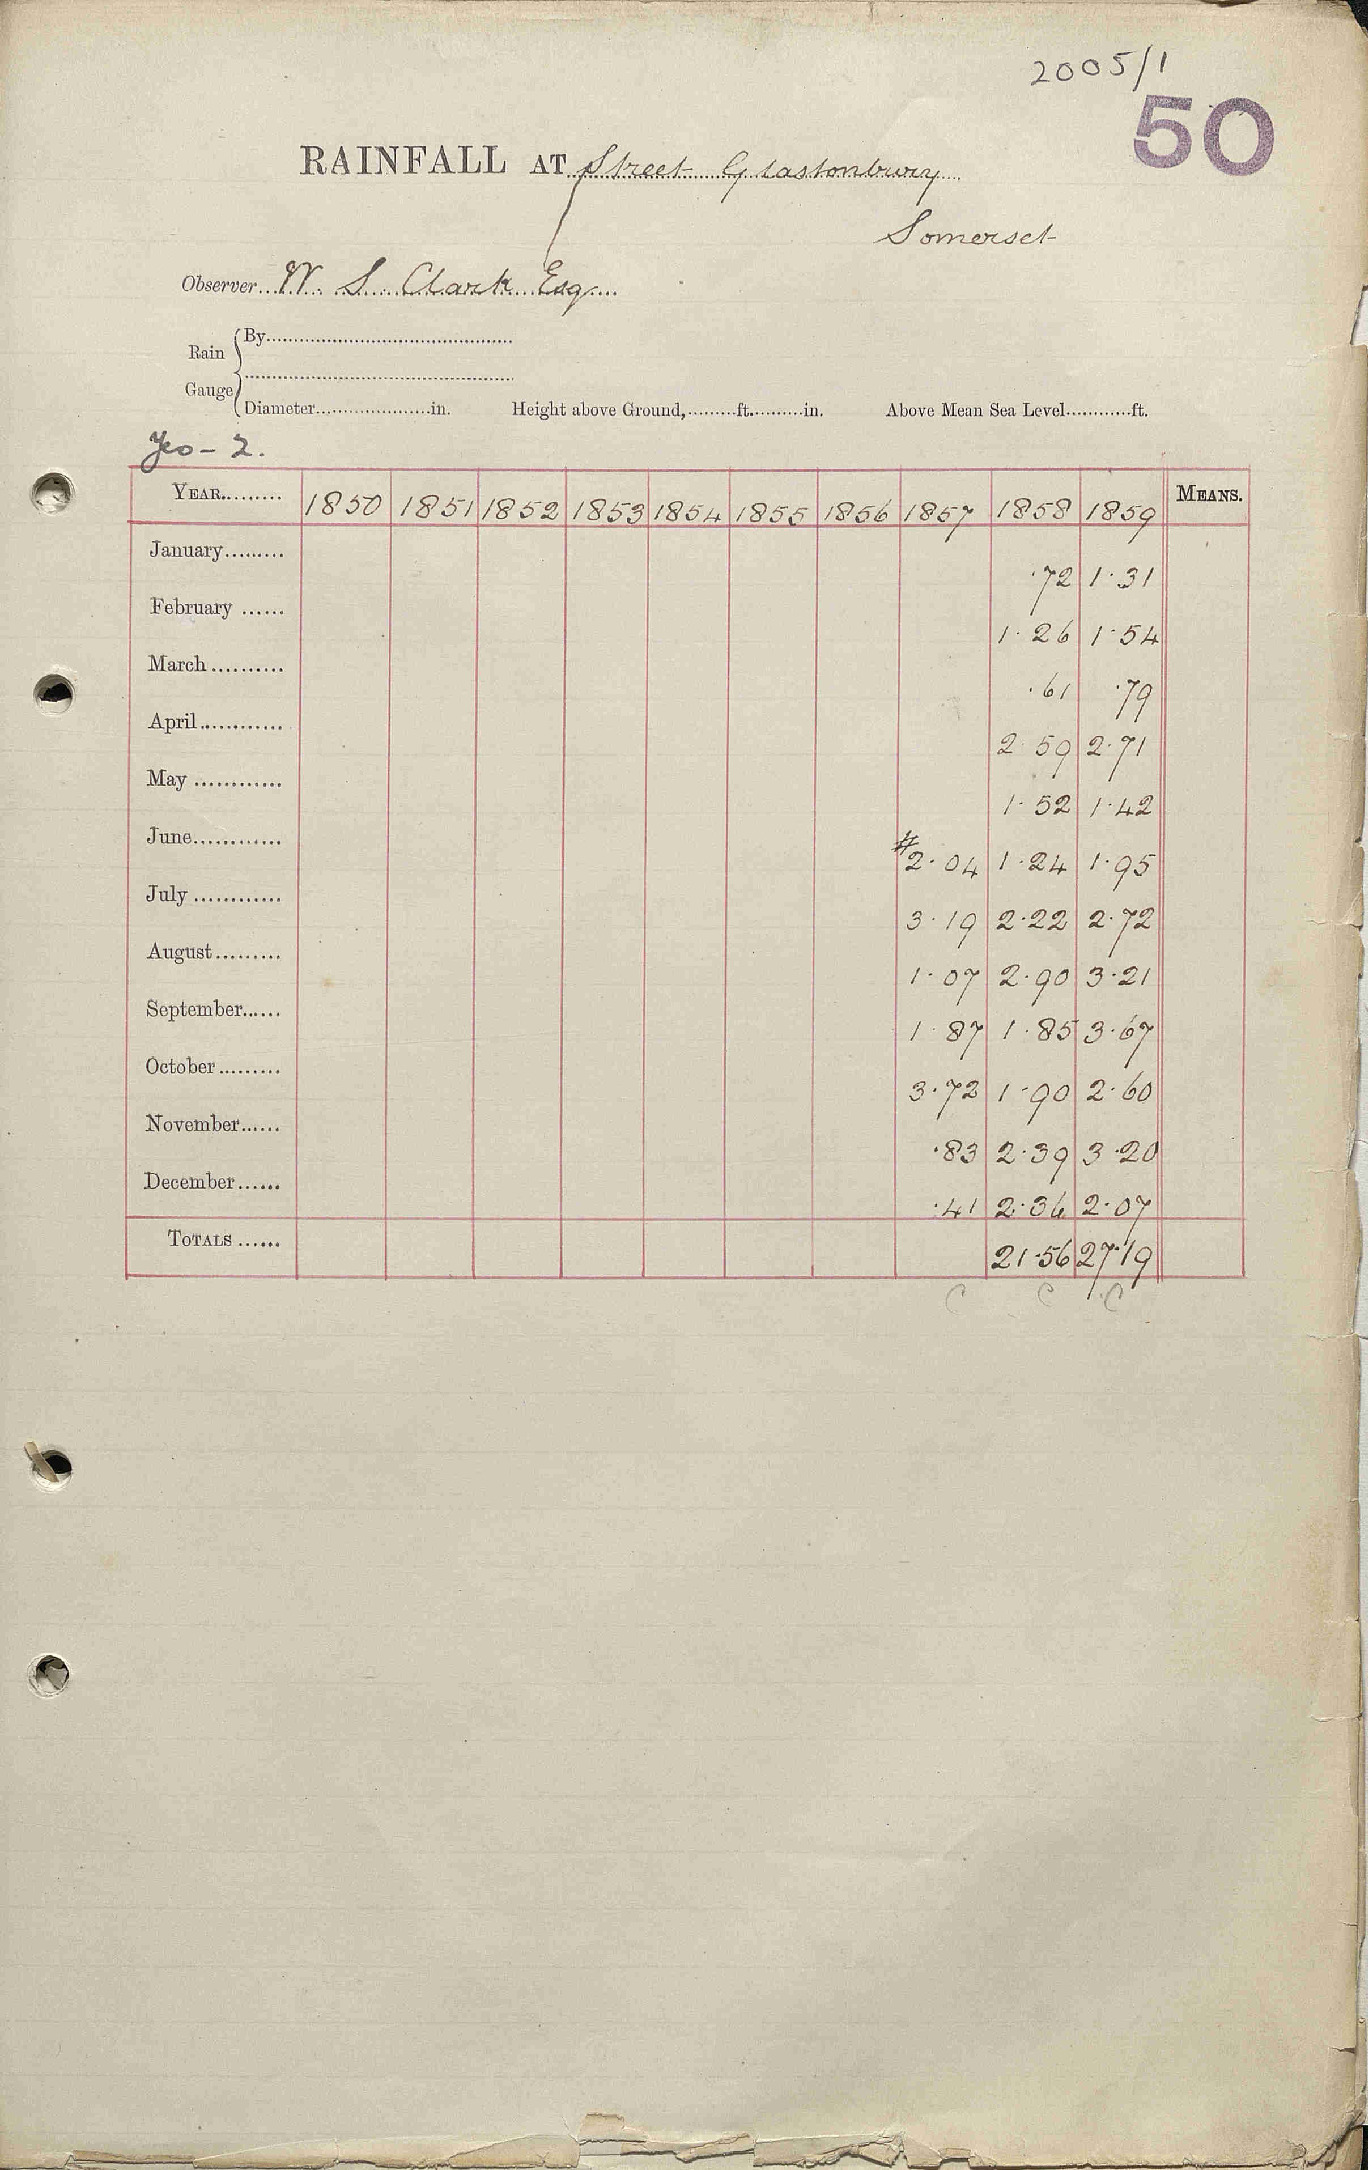 2005/1
50
RAINFALL AT Street Glastonbury
Somerset
Observer W. S. Clark Esq
Rain Gauge
By
Diameter in. Height above Ground, ft. in. Above Mean Sea Level ft.
Yeo - 2.
YEAR 1850 1851 1852 1853 1854 1855 1856 1857 1858 1859 MEANS.
January ·72 1·31
February 1·26 1·54
March ·61 ·79
April 2·59 2·71
May 1·52 1·42
June #2·04 1·24 1·95
July 3·19 2·22 2·72
August 1·07 2·90 3·21
September 1·87 1·85 3·67
October 3·72 1·90 2·60
November ·83 2·39 3·20
December ·41 2·36 2·07
TOTALS 21·56 27·19
C C C